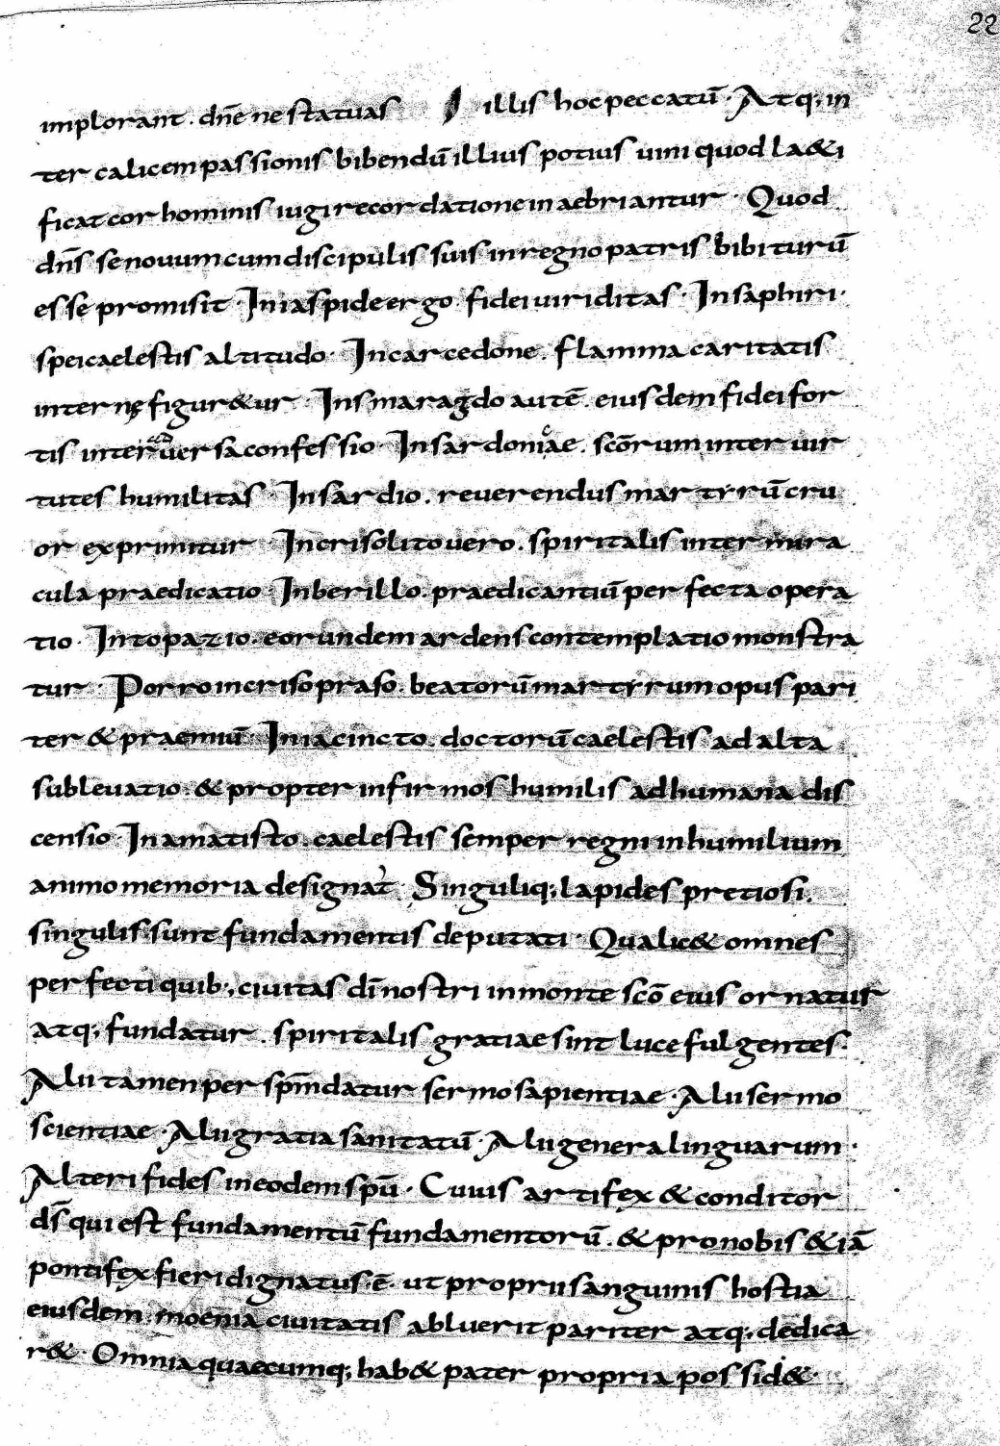 22
implorant. dn̄e ne statuas illis hoc peccatū. Atq; in
ter calicem passionis bibendū illius potius uini quod l&i
ficat cor hominis iugi recordatione inaebriantur. Quod
dn̄s se nouum cum discipulis suis in regno patris bibiturū
esse promisit. In iaspide ergo. fidei uiriditas. In saphiri.
spei caelestis altitudo. In carcedone. flamma caritatis
internę figur&ur. In smaragdo autē. eiusdem fidei for
tis inter aduersa confessio. In sardonicae. scōrum inter uir
tutes humilitas. In sardio. reuerendus martyrū cru
or exprimitur. In crisolito uero. spiritalis inter mira
cula praedicatio. In berillo. praedicantiū perfecta opera
tio. In topazio. eorundem ardens contemplatio monstra
tur. Porro in crisopraso. beatorū martyrum opus pari
ter & praemiū. In iacincto. doctorū caelestis ad alta
subleuatio. & propter infirmos humilis ad humana dis
censio. In amatisto. caelestis semper regni in humilium
animo memoria designat̄. Singuliq; lapides pretiosi.
singulis sunt fundamentis deputati. Qualic& omnes
perfecti quib; ciuitas dī nostri in monte scō eius ornatur
atq; fundatur. spiritalis gratiae sint luce fulgentes.
Alii tamen per sp̄m datur sermo sapientiae. Alii sermo
scientiae. Alii gratia sanitatū. Alii genera linguarum.
Alteri fides in eodem spū. Cuius artifex & conditor
ds̄ qui est fundamentū fundamentorū. & pro nobis &iā
pontifex fieri dignatus ē. ut proprii sanguinis hostia
eiusdem moenia ciuitatis abluerit pariter atq; dedica
r&. Omnia quaecumq; hab& pater propria possid&.